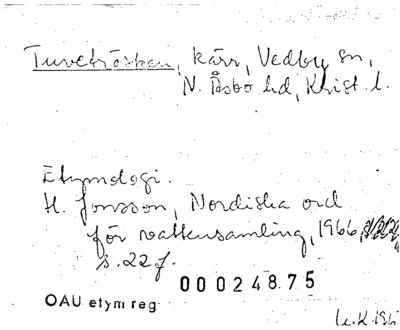 Tuveträsken, kärr, Vedby sn,
N. Åsbo hd, Krist. l.
Etymologi.
H. Jonsson, Nordiska ord
för vattensamling, 1966,
s. 22 f.
00024875
OAU etym reg